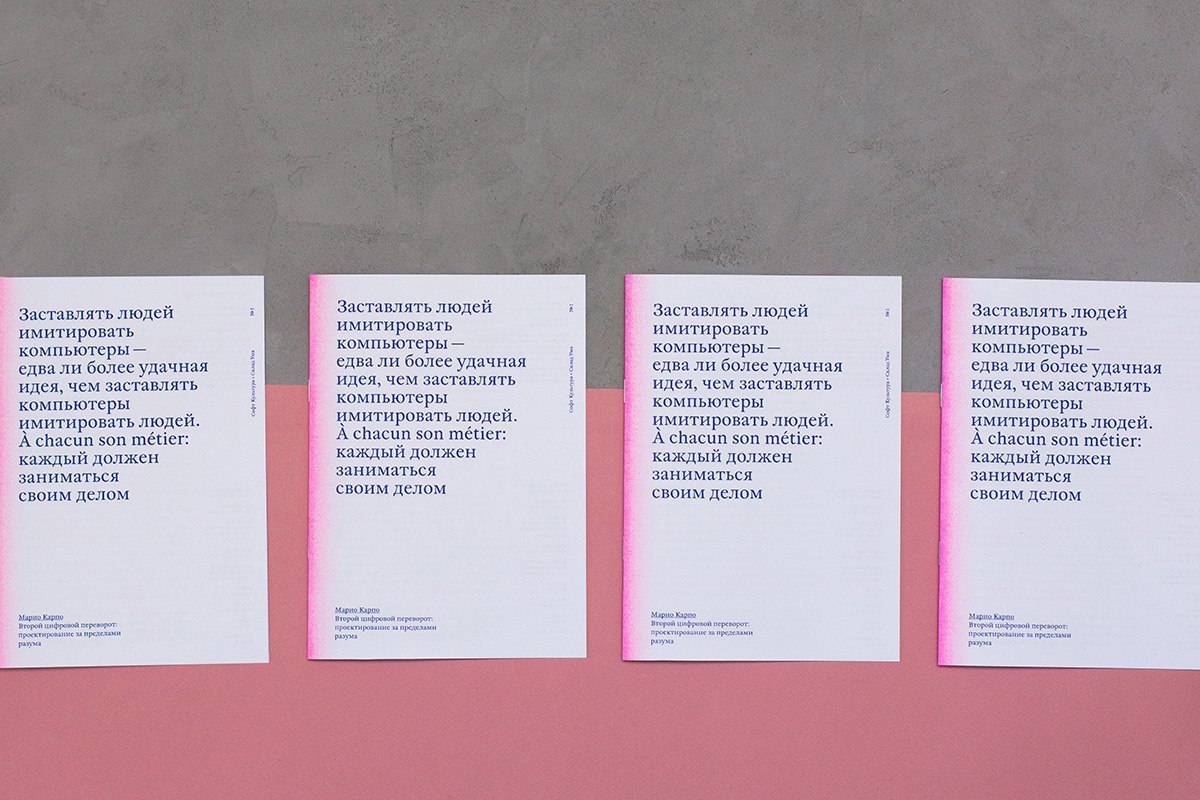 Заставлять людей
имитировать
компьютеры —
едва ли более удачная
идея, чем заставлять
компьютеры
имитировать людей.
À chacun son métier:
каждый должен
заниматься
своим делом
№1
Софт Культура × Склад Ума
Марио Карпо
Второй цифровой переворот:
проектирование за пределами
разума
Заставлять людей
имитировать
компьютеры —
едва ли более удачная
идея, чем заставлять
компьютеры
имитировать людей.
À chacun son métier:
каждый должен
заниматься
своим делом
№1
Софт Культура × Склад Ума
Марио Карпо
Второй цифровой переворот:
проектирование за пределами
разума
Заставлять людей
имитировать
компьютеры —
едва ли более удачная
идея, чем заставлять
компьютеры
имитировать людей.
À chacun son métier:
каждый должен
заниматься
своим делом
№1
Софт Культура × Склад Ума
Марио Карпо
Второй цифровой переворот:
проектирование за пределами
разума
Заставлять людей
имитировать
компьютеры —
едва ли более удачная
идея, чем заставлять
компьютеры
имитировать людей.
À chacun son métier:
каждый должен
заниматься
своим делом
Марио Карпо
Второй цифровой переворот:
проектирование за пределами
разума